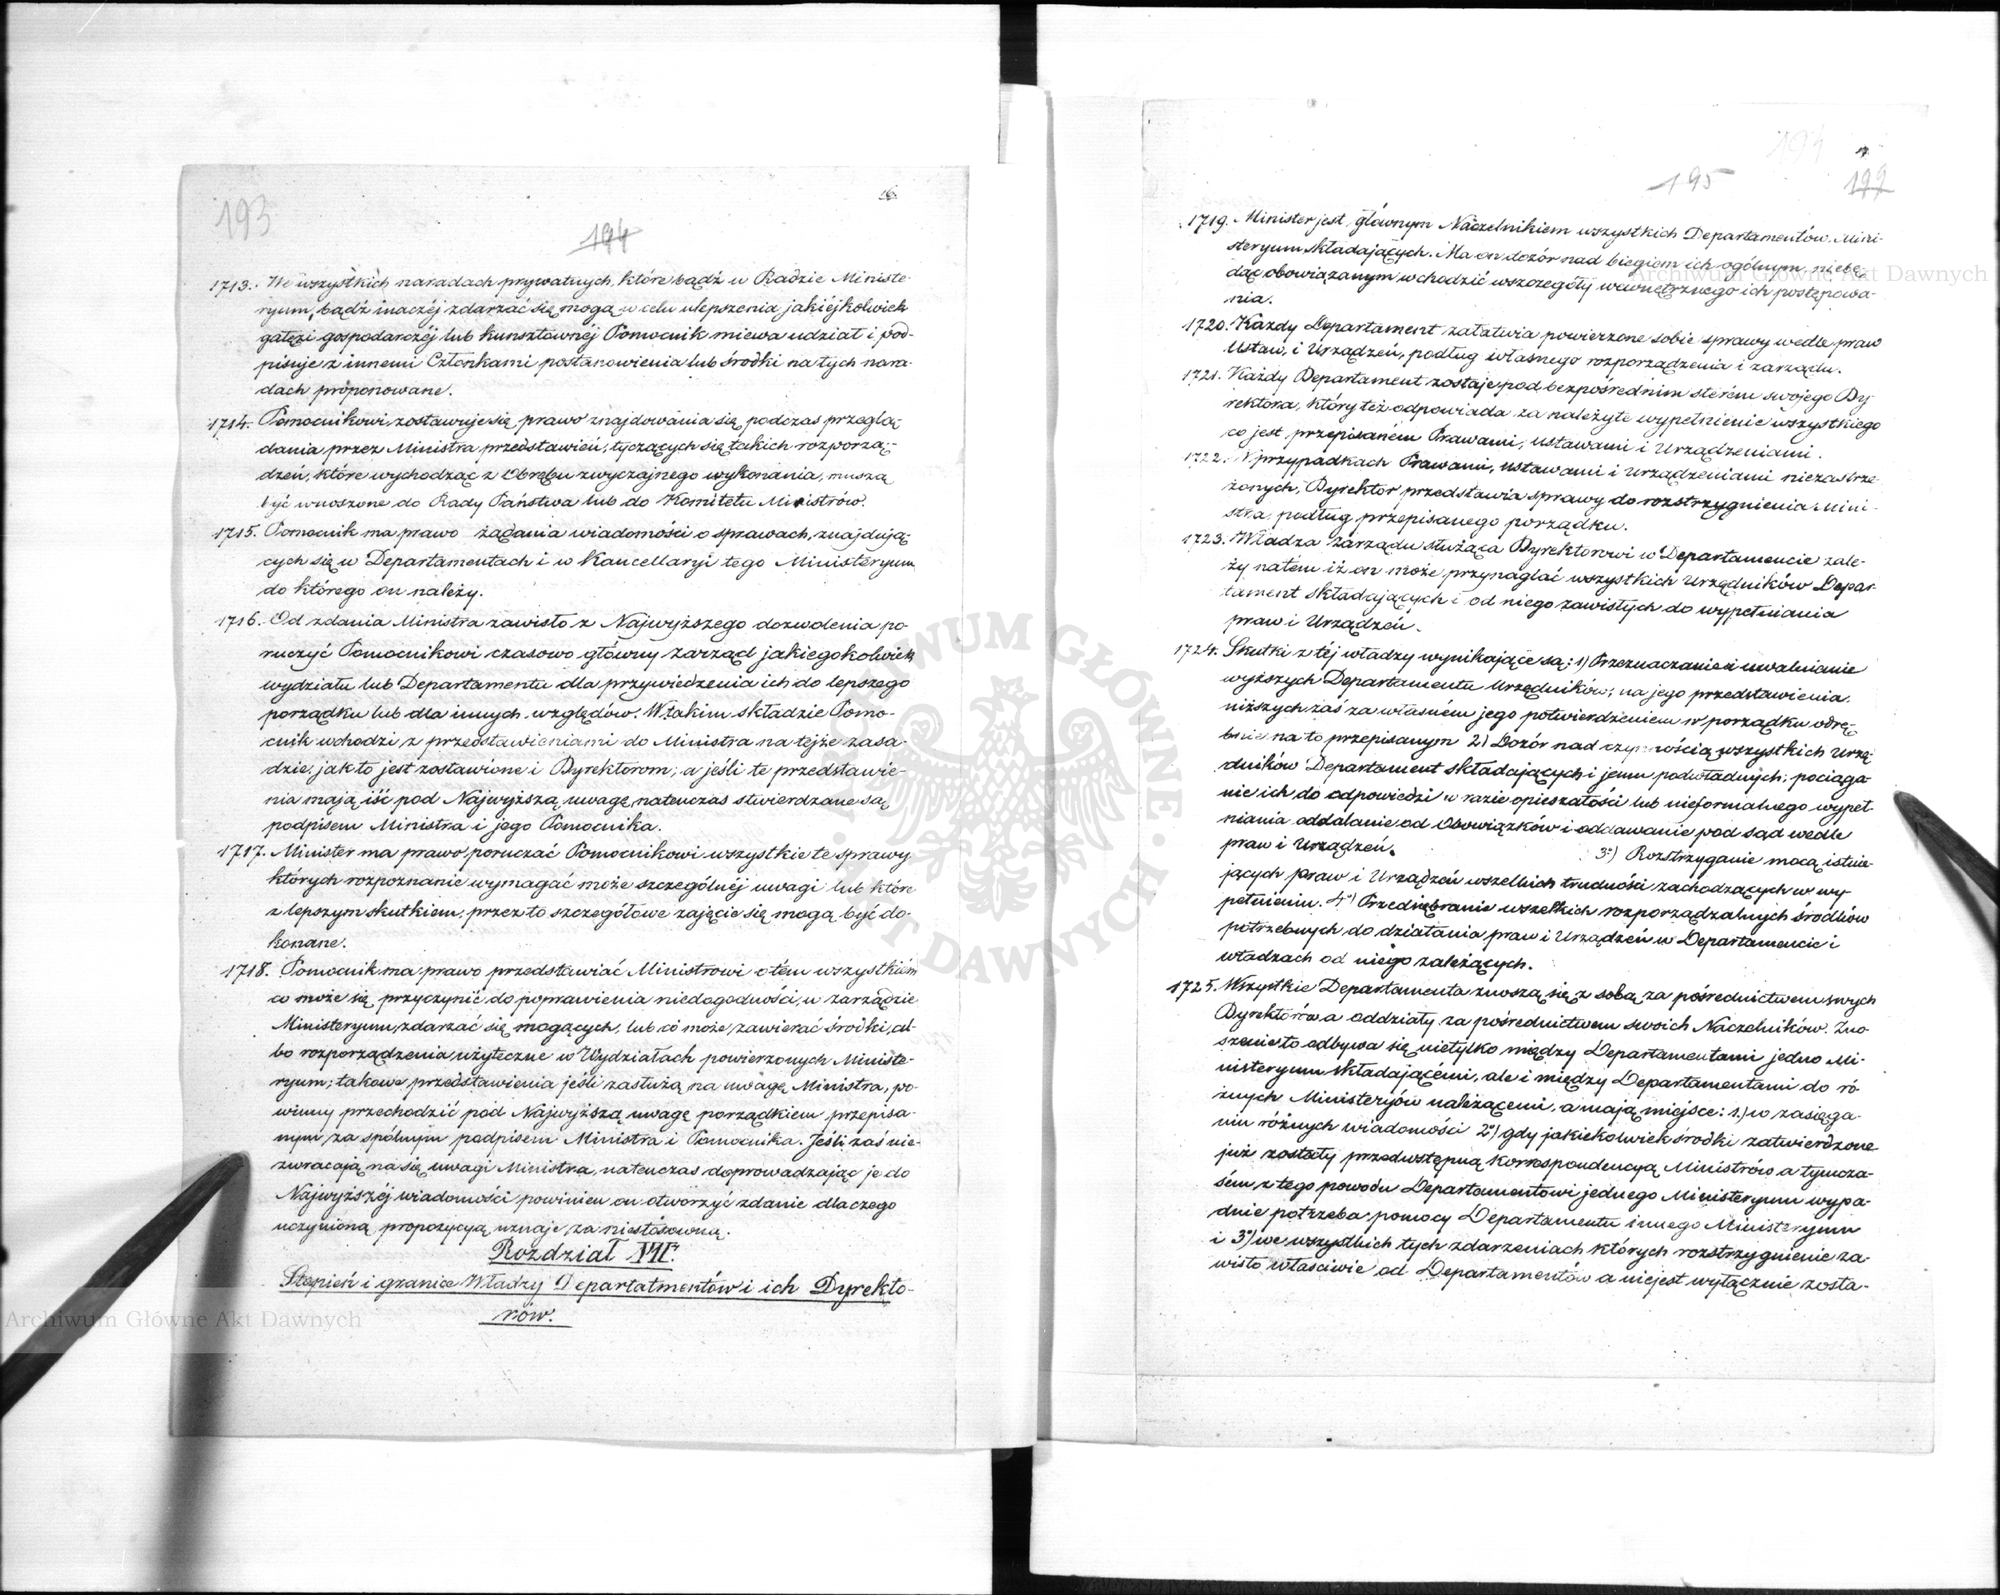 16.
193
194
1713. We wszystkich naradach prywatnych, które bądź w Radzie Ministe-
ryum, bądź inaczéj zdarzać się mogą w celu ulepszenia jakiéjkolwiek
gałęzi gospodarczéj lub kunsztownéj Pomocnik miewa udział i pod-
pisuje z innemi Członkami postanowienia lub środki na tych nara-
dach proponowane.
1714. Pomocnikowi zostawuje się prawo znajdowania się podczas przeglą-
dania przez Ministra przedstawień, tyczących się takich rozporzą-
dzeń, które wychodząc z Obrębu zwyczajnego wykonania, muszą
być wnoszone do Rady Państwa lub do Komitetu Ministrów.
1715. Pomocnik ma prawo żądania wiadomości o sprawach, znajdują-
cych się w Departamentach i w Kancellaryi tego Ministeryum
do którego on należy.
1716. Od zdania Ministra zawisło z Najwyższego dozwolenia po-
ruczyć Pomocnikowi czasowo główny zarząd jakiegokolwiek
wydziału lub Departamentu dla przywiedzenia ich do lepszego
porządku lub dla innych względów. W takim składzie Pomo-
cnik wchodzi z przedstawieniami do Ministra na tejże zasa-
dzie, jak to jest zostawione i Dyrektorom; a jeśli te przedstawie-
nia mają iść pod Najwyższą uwagę, natenczas stwierdzane są
podpisem Ministra i jego Pomocnika.
1717. Minister ma prawo poruczać Pomocnikowi wszystkie te sprawy
których rozpoznanie wymagać może szczególnéj uwagi lub które
z lepszym skutkiem, przez to szczegółowe zajęcie się mogą być do-
konane.
1718. Pomocnik ma prawo przedstawiać Ministrowi o tém wszystkiém
co może się przyczynić do poprawienia niedogodności, w zarządzie
Ministeryum, zdarzać się mogących, lub co może zawierać środki, al-
bo rozporządzenia użyteczne w Wydziałach powierzonych Ministe-
ryum; takowe przedstawienia jeśli zasłużą na uwagę Ministra, po-
winny przechodzić pod Najwyższą uwagę porządkiem przepisa-
nym za spólnym podpisem Ministra i Pomocnika. Jeśli zaś nie
zwracają na się uwagi Ministra, natenczas doprowadzając je do
Najwyższéj wiadomości powinien on otworzyć zdanie dlaczego
uczynioną propozycyą uznaje za niestósowną.
Rozdział VII.
Stopień i granice Władzy Departatmentów i ich Dyrekto-
rów.
17.
195
1719. Minister jest głównym Naczelnikiem wszystkich Departamentów Mini-
steryum składających. Ma on dozór nad biegiem ich ogólnym, niebę-
dąc obowiązanym wchodzić w szczegóły wewnętrznego ich postępowa-
nia.
1720. Każdy Departament załatwia powierzone sobie sprawy wedle praw
Ustaw, i Urządzeń, podług własnego rozporządzenia i zarządu.
1721. Każdy Departament zostaje pod bezpośrednim stérem swojego Dy-
rektora, który też odpowiada za należyte wypełnienie wszystkiego
co jest przepisaném Prawami, ustawami i Urządzeniami.
1722. W przypadkach Prawami, ustawami i urządzeniami niezastrze-
żonych, Dyrektor przedstawia sprawy do rozstrzygnienia Mini-
stra, podług przepisanego porządku.
1723. Władza zarządu służąca Dyrektorowi w Departamencie zale-
ży na tem iż on może przynaglać wszystkich urzędników Depar-
tament składających i od niego zawisłych do wypełniania
praw i Urządzeń.
1724. Skutki z téj władzy wynikające są: 1) Przeznaczanie i uwalnianie
wyższych Departamentu Urzędników, na jego przedstawienia.
niższych zaś za własném jego potwierdzeniem w porządku odrę-
bnie na to przepisanym 2) Dozór nad czynnością wszystkich urzę-
dników Departament składających i jemu podwładnych; pociąga-
nie ich do odpowiedzi w razie opieszałości lub nieformalnego wypeł-
niania oddalanie od Obowiązków i oddawanie pod sąd wedle
praw i Urządzeń. 3º) Rozstrzyganie mocą istnie-
jących praw i Urządzeń wszelkich trudności zachodzących w wy-
pełnieniu. 4º) Przedsiębranie wszelkich rozporządzalnych środków
potrzebnych do działania praw i Urządzeń w Departamencie i
władzach od niego zależących.
1725. Wszystkie Departamenta znoszą się z sobą za pośrednictwem swych
Dyrektórów a oddziały za pośrednictwem swoich Naczelników. Zno-
szenie to odbywa się nietylko między Departamentami jedno Mi-
nisteryum składającemi, ale i między Departamentami do ró-
żnych Ministeryów należącemi, a mają miejsce: 1.) w zasięga-
niu różnych wiadomości 2º) gdy jakiekolwiek środki zatwierdzone
już zostały przedwstępną korrespondencyą Ministrów a tymcza-
sém z tego powodu Departamentowi jednego Ministeryum wypa-
dnie potrzeba pomocy Departamentu innego Ministeryum
i 3º) we wszystkich tych zdarzeniach których rozstrzygnienie za-
wisło właściwie od Departamentów a niejest wyłącznie zosta-
Archiwum Główne Akt Dawnych
Archiwum Główne Akt Dawnych
ARCHIWUM GŁÓWNE AKT DAWNYCH